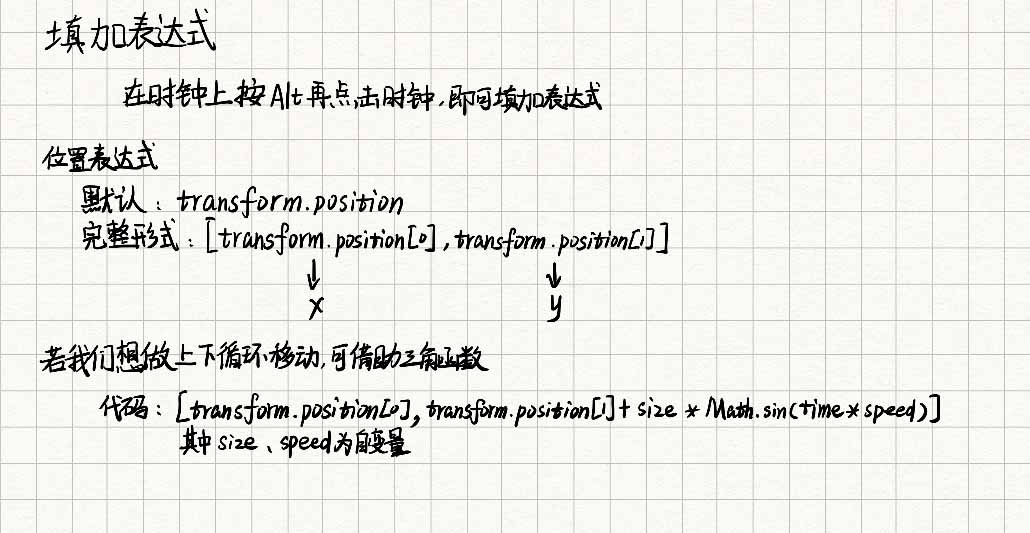 填加表达式
在时钟上按Alt再点击时钟,即可填加表达式
位置表达式
默认:transform.position
完整形式:[transform.position[0],transform.position[1]]
↓ ↓
x y
若我们想做上下循环移动,可借助三角函数
代码:[transform.position[0],transform.position[1]+size*Math.sin(time*speed)]
其中size、speed为自变量